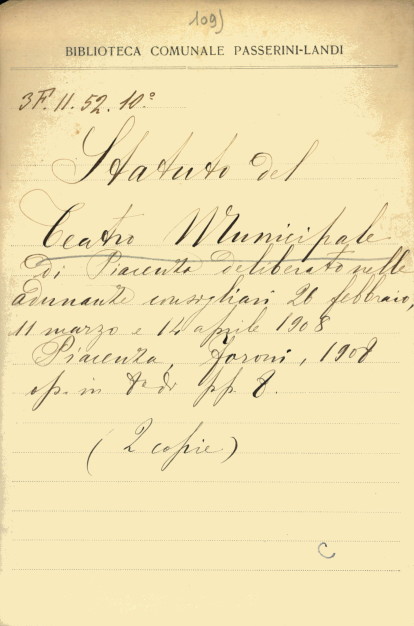 109)
BIBLIOTECA COMUNALE PASSERINI-LANDI
3F. 11. 52. 10°
Statuto del
Teatro Municipale
di Piacenza deliberato nelle
adunanze consigliari 26 febbraio,
11 marzo e 14 aprile 1908
Piacenza, Foroni, 1908
op. in 8° pp. 8.
(2 copie)
C